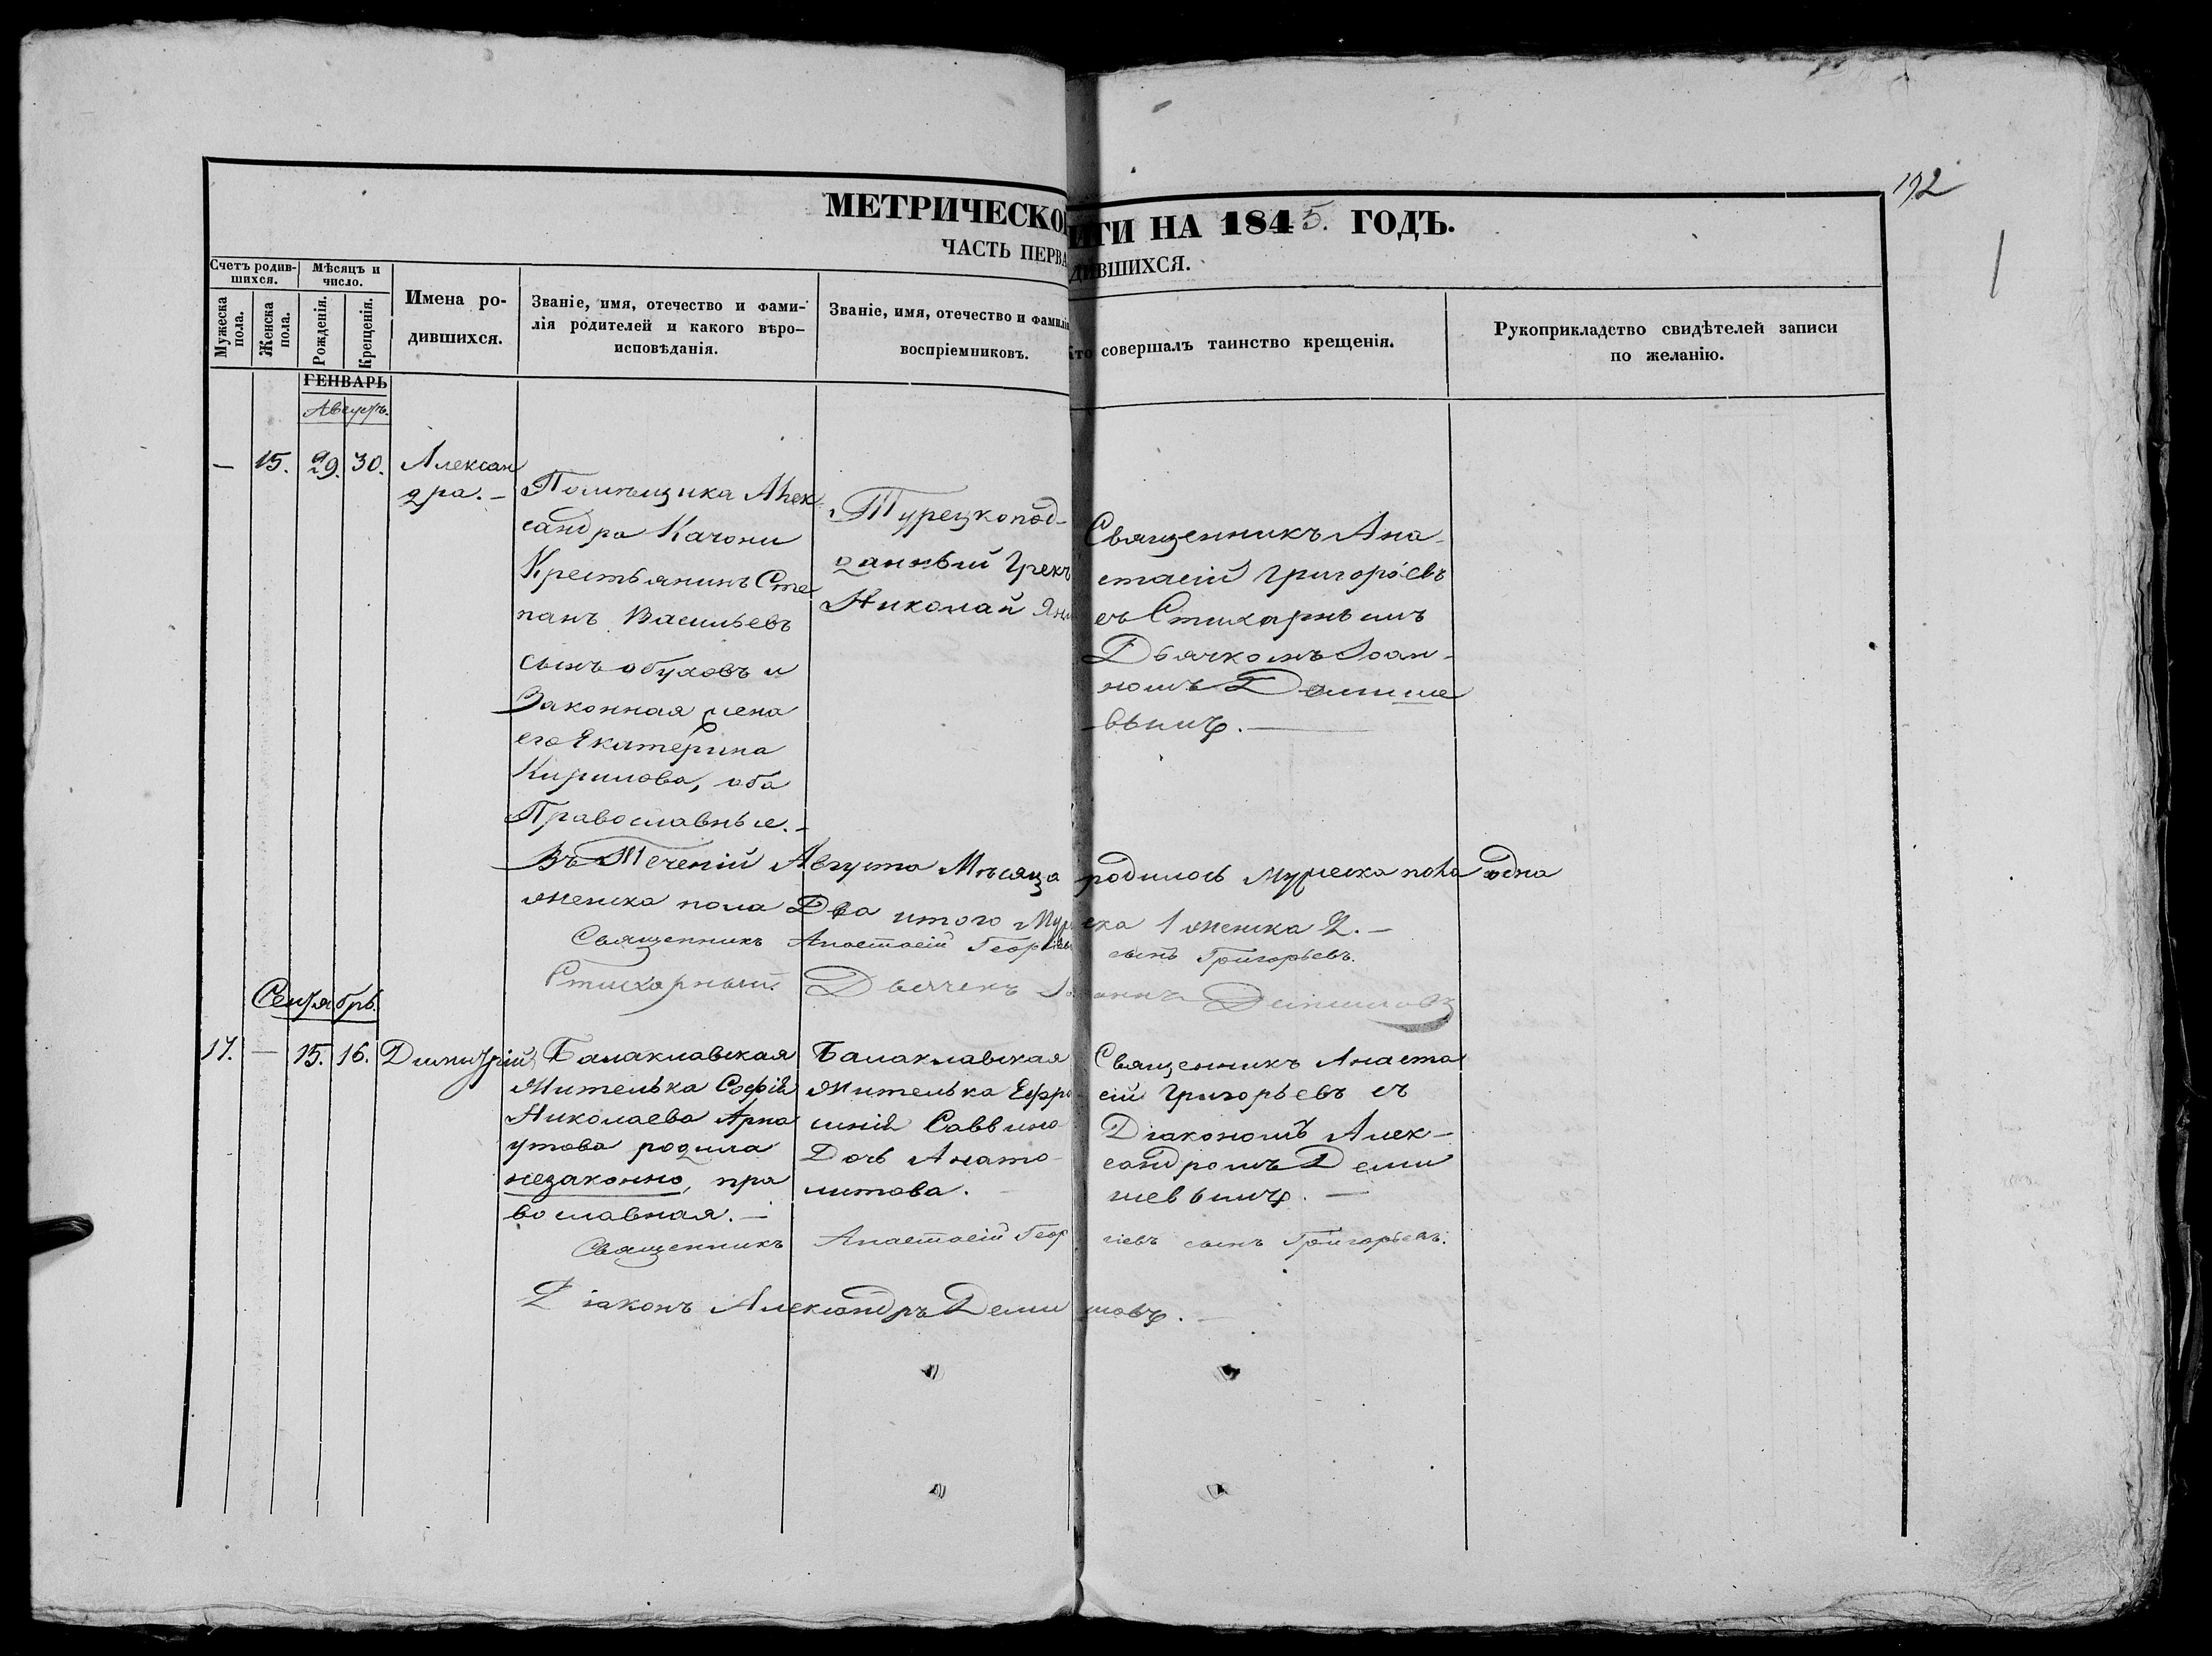 192
МЕТРИЧЕСКО ИГИ НА 1845. ГОДЪ.
ЧАСТЬ ПЕРВА ДИВШИХСЯ.
Счетъ родившихся.
Мѣсяцъ и число.
Мужеска пола.
Женска пола.
Рожденія.
Крещенія.
Имена родившихся.
Званіе, имя, отечество и фами-
лія родителей и какого вѣро-
исповѣданія.
Званіе, имя, отечество и фамилі
воспріемниковъ.
Кто совершалъ таинство крещенія.
Рукоприкладство свидѣтелей записи
по желанію.
ГЕНВАРЬ
Августъ.
— 15. 29. 30.
Алексан
дра. —
Помѣщика Алек
сандра Качони
Крестьянинъ Сте
панъ Васильевъ
сынъ Обуховъ и
Законная жена
его Екатерина
Кирилова, оба
Православные. —
Турецкопод-
данный Грекъ
Николай Яни
Священникъ Ана-
стасій Григорьевъ
съ Стихарнымъ
Дьячкомъ Іоан-
номъ Демише
вымъ. —
Въ Теченіи Августа Мѣсяца родилось мужеска пола одна
женска пола Два итого Мужеска 1 женска 2. —
Священникъ Анастасій Георгіевъ сынъ Григорьевъ.
Стихарный Дьячекъ Іоаннъ Демишовъ
Сентябрь.
17. — 15. 16.
Димитрій
Балаклавская
Жителька Софія
Николаева Арна
утова родила
незаконно, пра
вославная. —
Балаклавская
Жителька Ефро
синія Саввина
Дочь Анато-
литова. —
Священникъ Анаста
сій Григорьевъ съ
Діакономъ Алек-
сандромъ Деми
шевымъ. —
Священникъ Анастасій Георгіевъ сынъ Григорьевъ.
Діаконъ Александръ Демишовъ. —